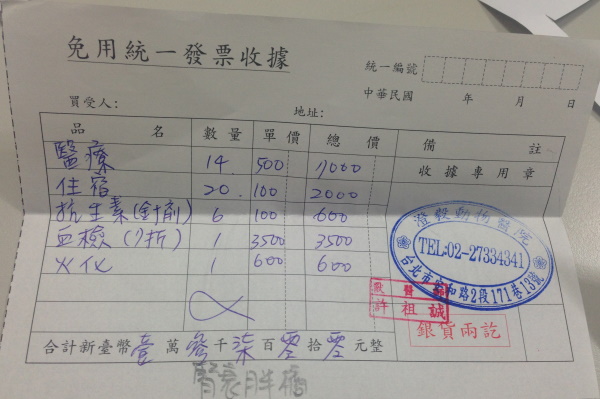 免用統一發票收據
統一編號
中華民國 年 月 日
買受人: 地址:
品名 數量 單價 總價 備註
醫療 14 500 7000 收據專用章
住宿 20 100 2000
抗生素(針劑) 6 100 600
血檢(7折) 1 3500 3500
火化 1 600 600
澄毅動物醫院
TEL:02-27334341
台北市安和路2段171巷13號
獸醫師
許祖誠
銀貨兩訖
合計新臺幣壹萬參千柒百零拾零元整
腎衰胖橘